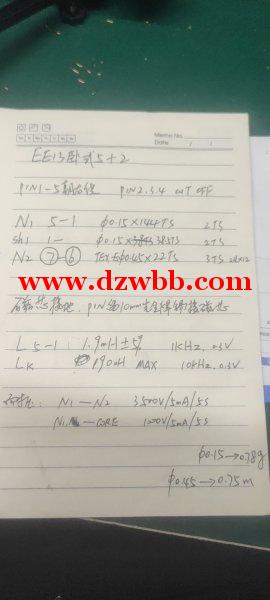 Memo No.
Date / /
EE13卧式5+2
PIN 2.3.4 CUT OFF
N1 5-1 φ0.15×144TS 2TS
Sh1 1- φ0.15× 38.5TS 2TS
N2 ⑦-⑥ TEX-E φ0.45×22TS 3TS
www.dzwbb.com
磁芯接地. PIN
L5-1: 1.9mH±5% 1KHz, 0.3V
LK 190uH MAX 10KHz, 0.3V
N1—N2 3500V/5mA/5S
CORE 1000V/5mA/5S
φ0.15→0.78g
φ0.45→0.75m